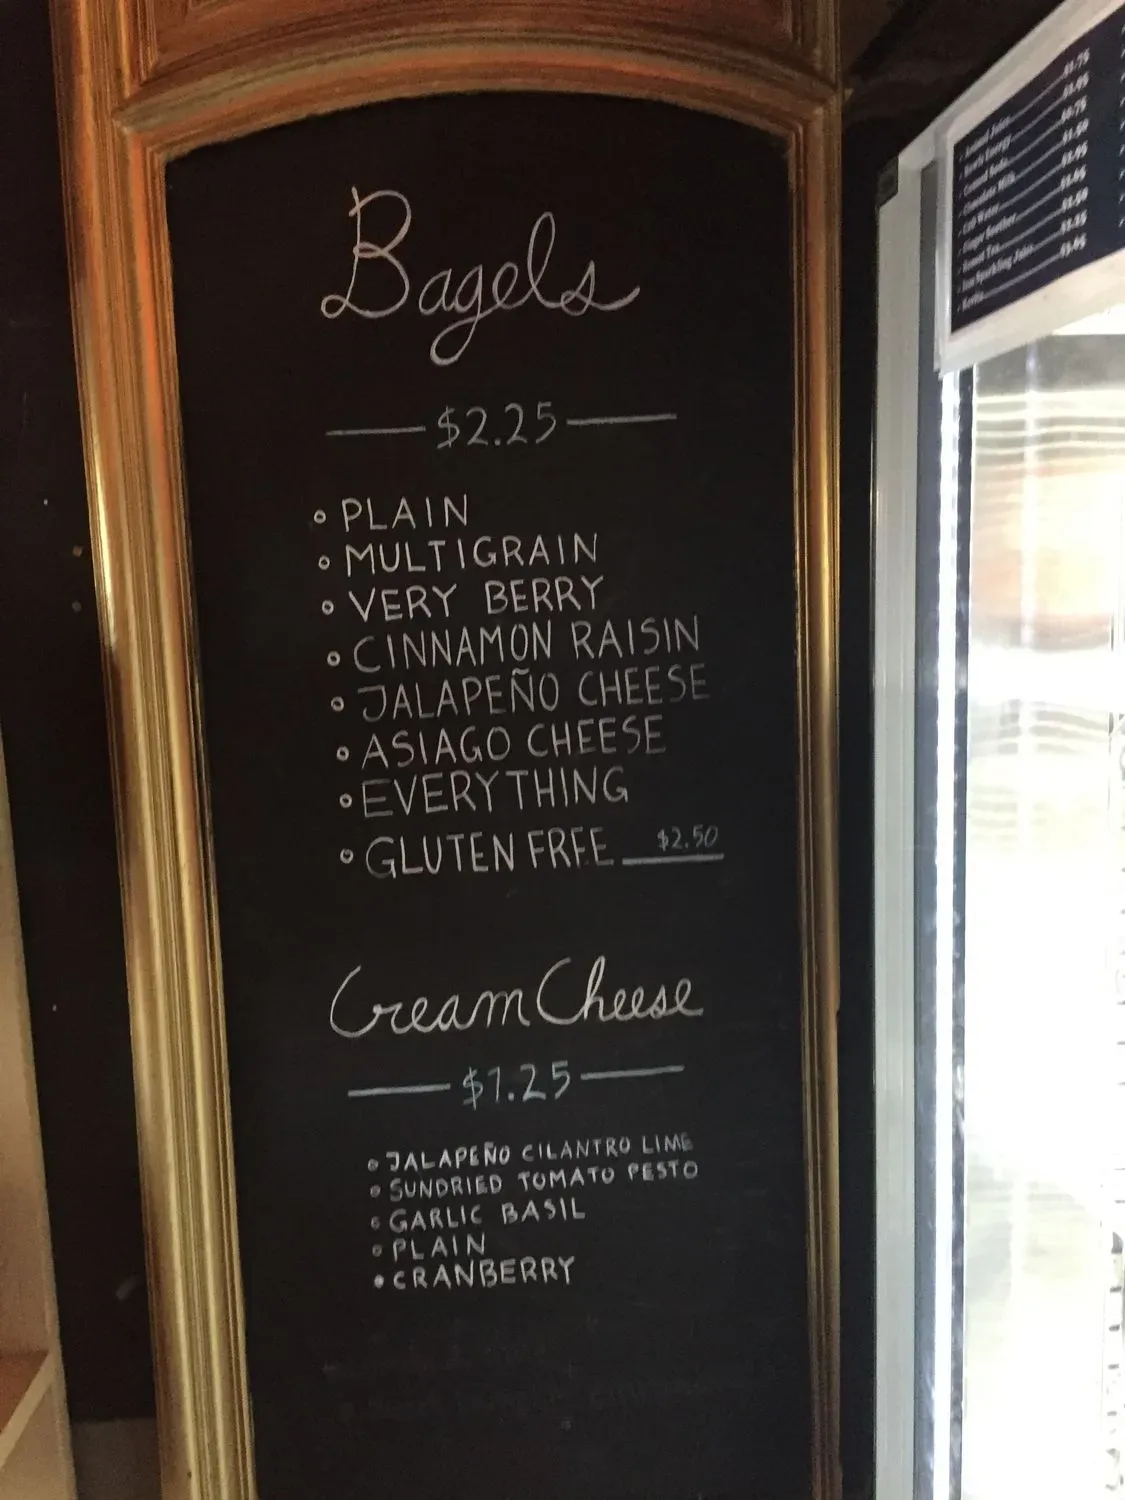 Bagels
$2.25
PLAIN
MULTIGRAIN
VERY BERRY
CINNAMON RAISIN
JALAPEÑO CHEESE
ASIAGO CHEESE
EVERYTHING
GLUTEN FREE $2.50
Cream Cheese
$1.25
JALAPEÑO CILANTRO LIME
SUNDRIED TOMATO PESTO
GARLIC BASIL
PLAIN
CRANBERRY